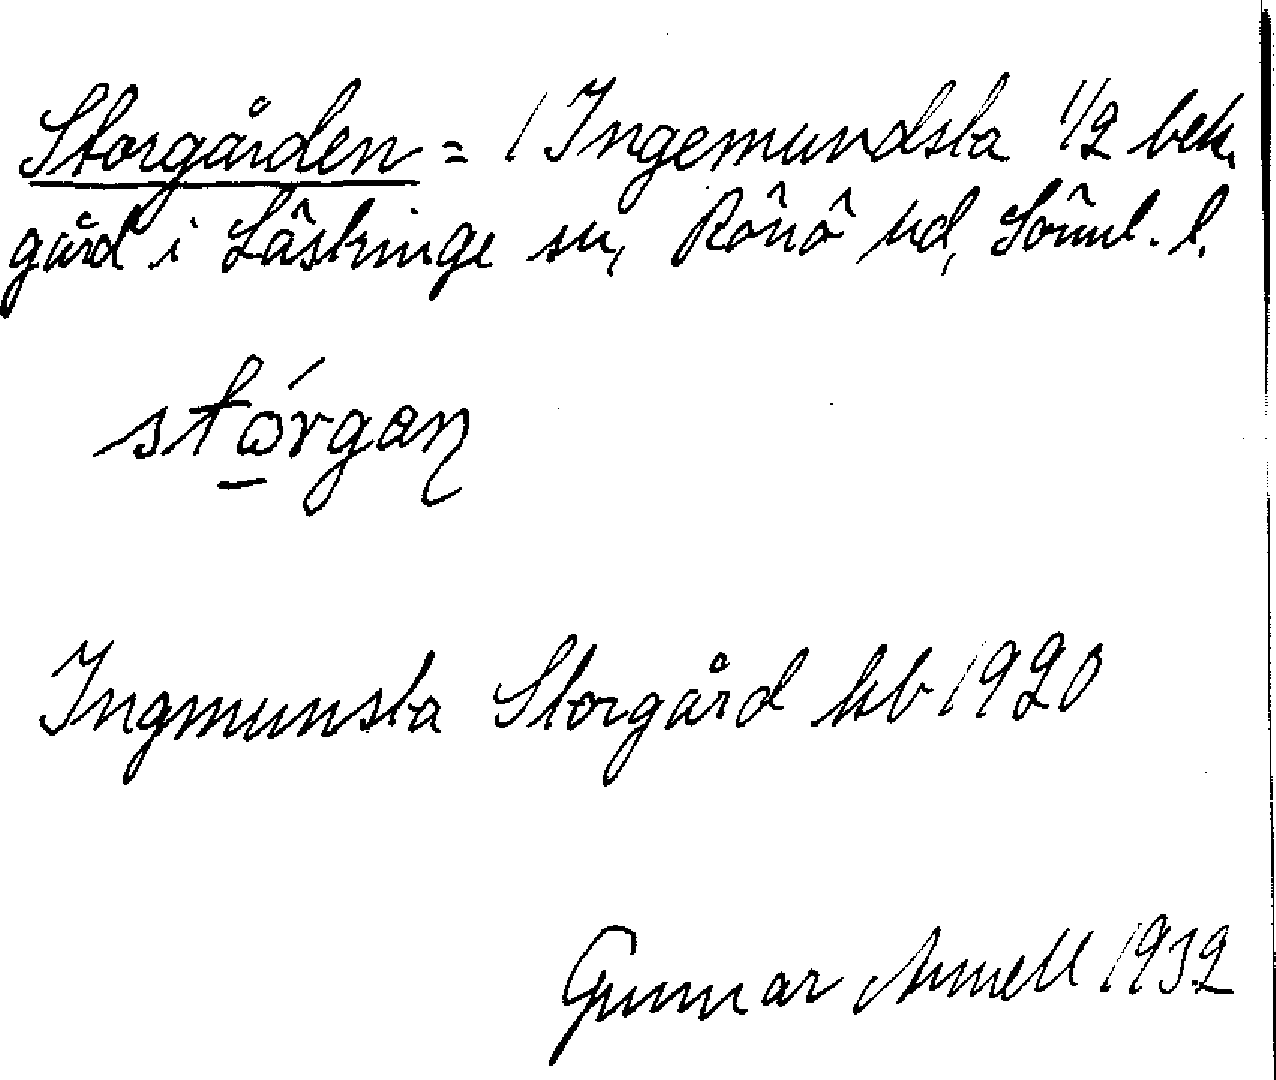 Storgården = 1 Ingemundsta 1/2 bek.
gård i Lästringe sn, Rönö hd, Söml. l.
stǫ́rgan
Ingmunsta Storgård kb 1920
Gunnar 1932